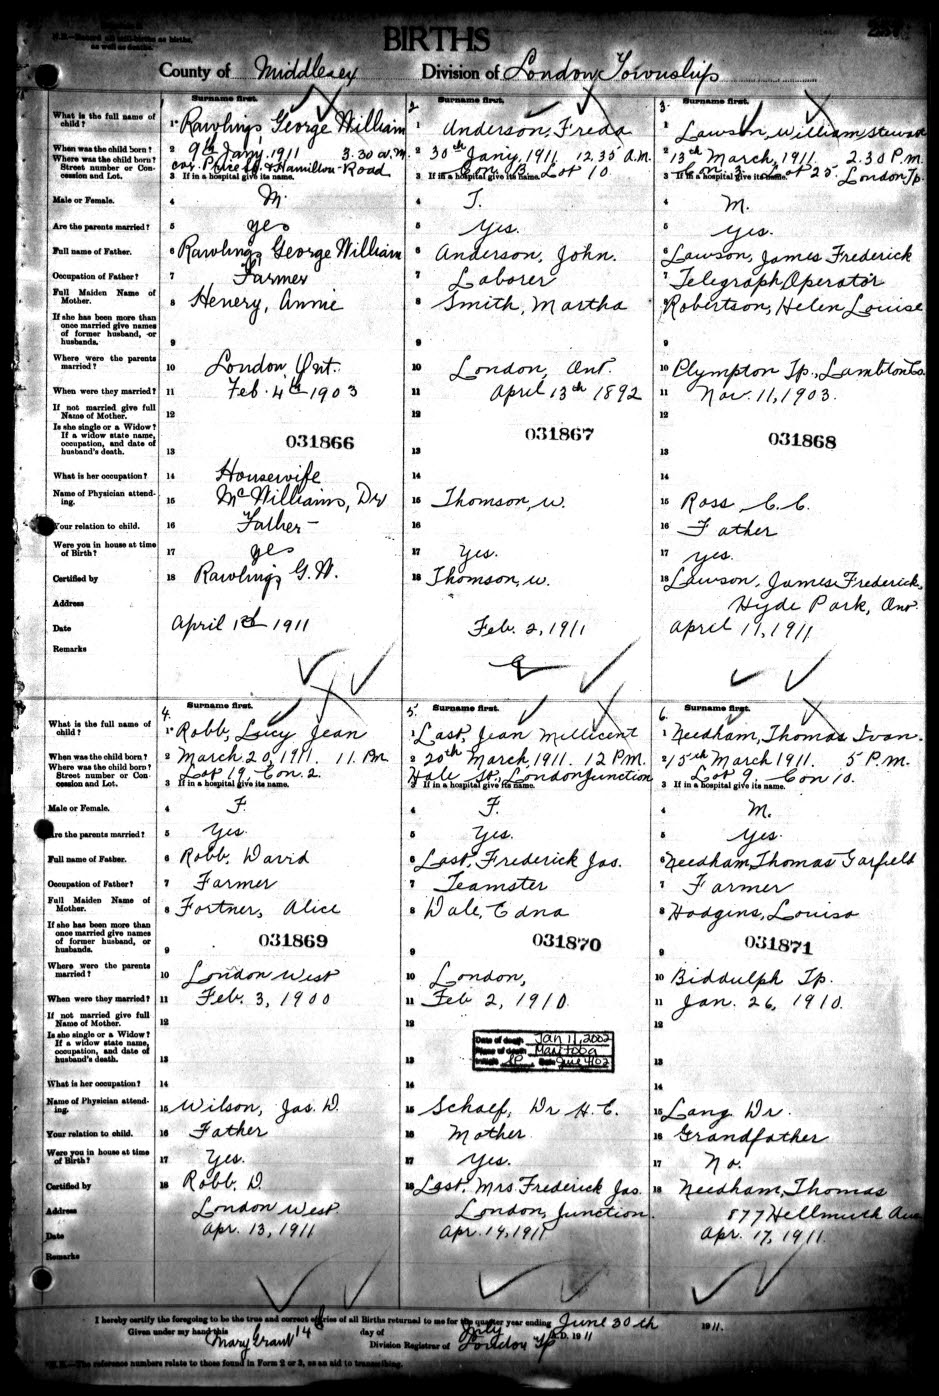 BIRTHS
County of Middlesex Division of London Township
Surname first. Surname first. Surname first.
1. 2. 3.
What is the full name of child? 1 Rawlings George William 1 Anderson, Freda 1 Lawson, William Stewart
When was the child born? 2 9th Jany, 1911 3.30 a.m. 2 30th Jany, 1911 12.35 A.M. 2 13th March, 1911 2.30 P.M.
Where was the child born? Street number or Concession and Lot. 3 If in a hospital give its name. cor. St. & Hamilton Road 3 If in a hospital give its name. Con. B Lot 10 3 If in a hospital give its name. Con 3 Lot 25 London Tp.
Male or Female. 4 M. 4 F. 4 M.
Are the parents married? 5 yes 5 Yes. 5 yes.
Full name of Father. 6 Rawlings George William 6 Anderson, John. 6 Lawson, James Frederick
Occupation of Father? 7 Farmer 7 Laborer 7 Telegraph Operator
Full Maiden Name of Mother. 8 Henery, Annie 8 Smith, Martha 8 Robertson, Helen Louise
If she has been more than once married give names of former husband, or husbands. 9 9 9
Where were the parents married? 10 London, Ont. 10 London, Ont. 10 Plympton Tp., Lambton Co.
When were they married? 11 Feb. 4th 1903 11 April 13th 1892 11 Nov. 11, 1903.
If not married give full Name of Mother. 12 12 12
Is she single or a Widow? If a widow state name, occupation, and date of husband's death. 13 031866 13 031867 13 031868
What is her occupation? 14 Housewife 14 14
Name of Physician attending. 15 McWilliams, Dr 15 Thomson, W. 15 Ross C. C.
Your relation to child. 16 Father 16 16 Father
Were you in house at time of Birth? 17 yes 17 Yes. 17 yes.
Certified by 18 Rawlings G. W. 18 Thomson, W. 18 Lawson, James Frederick,
Address Hyde Park, Ont
Date April 1st 1911 Feb. 2, 1911 April 11, 1911
Remarks
Surname first. Surname first. Surname first.
4. 5. 6.
What is the full name of child? 1 Robb, Lucy Jean 1 Last, Jean Millicent 1 Needham, Thomas Ivan.
When was the child born? 2 March 20, 1911. 11 P.M. 2 20th March, 1911. 12 P.M. 2 15th March 1911. 5 P.M.
Where was the child born? Street number or Concession and Lot. 3 If in a hospital give its name. Lot 19, Con. 2 3 If in a hospital give its name. Hale St., London Junction 3 If in a hospital give its name. Lot 9. Con 10.
Male or Female. 4 F. 4 F. 4 M.
Are the parents married? 5 Yes. 5 Yes. 5 yes.
Full name of Father. 6 Robb, David 6 Last, Frederick Jas. 6 Needham, Thomas Garfield
Occupation of Father? 7 Farmer 7 Teamster 7 Farmer
Full Maiden Name of Mother. 8 Fortner, Alice 8 Dale, Edna 8 Hodgins, Louisa
If she has been more than once married give names of former husband, or husbands. 9 031869 9 031870 9 031871
Where were the parents married? 10 London West 10 London, 10 Biddulph Tp.
When were they married? 11 Feb. 3, 1900 11 Feb 2, 1910. 11 Jan. 26, 1910.
If not married give full Name of Mother. 12 12 12
Is she single or a Widow? If a widow state name, occupation, and date of husband's death. 13 13 13
Date of death Jan 11, 2002
Place of death Manitoba
Initials SP Date June 4/02
What is her occupation? 14 14 14
Name of Physician attending. 15 Wilson, Jas. D. 15 Schaef, Dr H. C. 15 Lang Dr.
Your relation to child. 16 Father 16 Mother 16 Grandfather
Were you in house at time of Birth? 17 Yes. 17 Yes. 17 No.
Certified by 18 Robb. D. 18 Last, Mrs Frederick Jas. 18 Needham, Thomas
Address London West London, Junction. 877 Hellmuth Ave
Date Apr. 13, 1911 Apr. 14, 1911 Apr. 17, 1911.
Remarks
I hereby certify the foregoing to be the true and correct entries of all Births returned to me for the quarter year ending June 30th 1911.
Given under my hand this 14 day of July A.D. 1911
Mary Grant Division Registrar of London Tp
N.B.—The reference numbers relate to those found in Form 2 or 3, as an aid to transcribing.